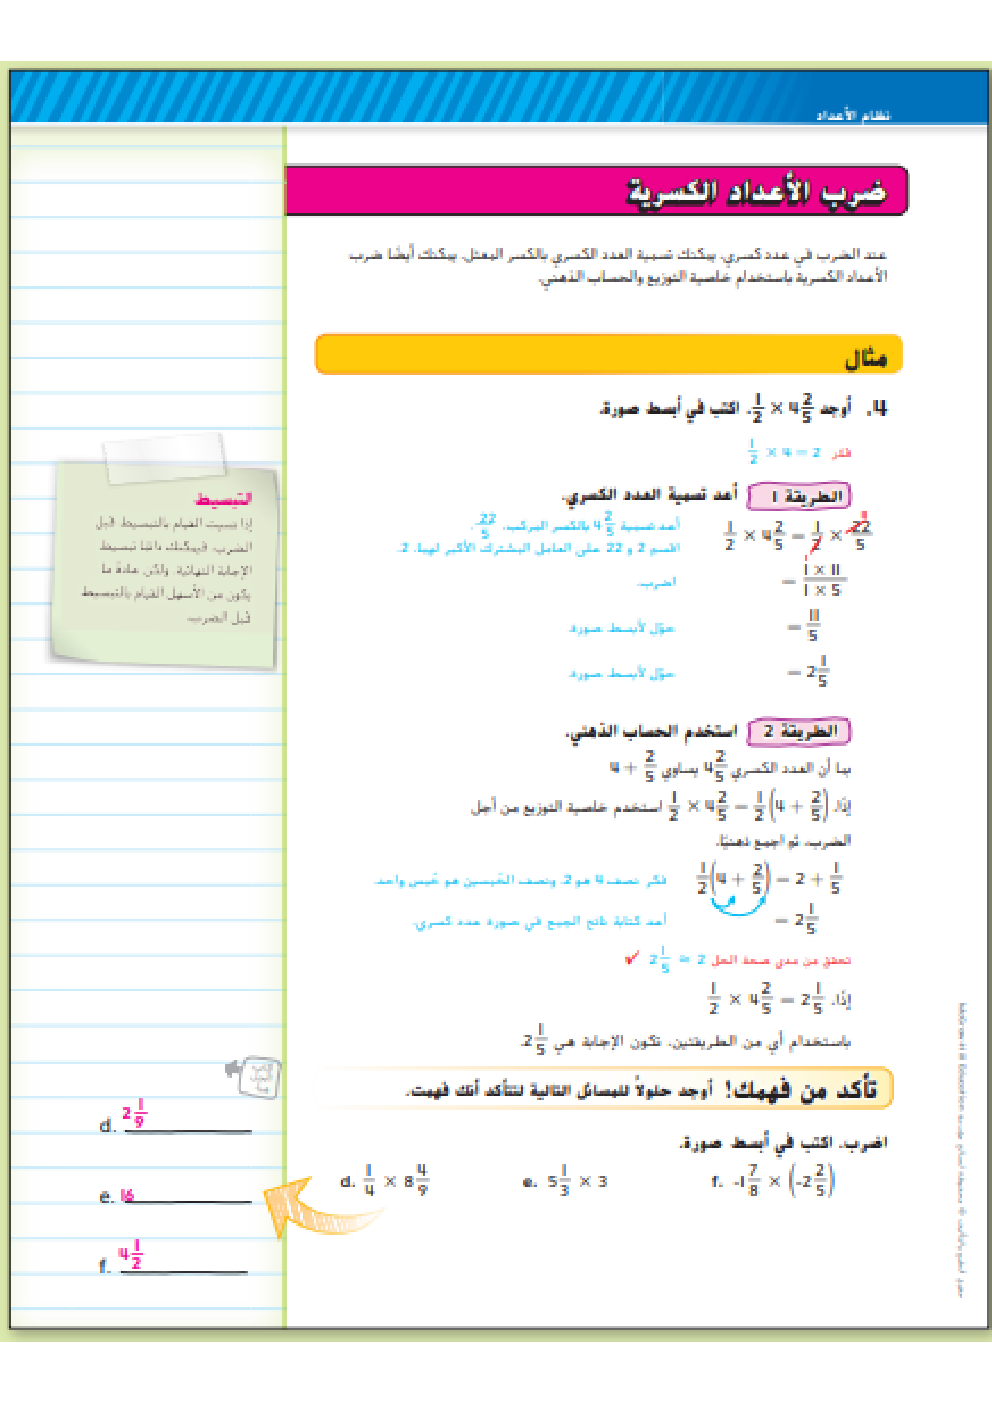 نظام الأعداد
ضرب الأعداد الكسرية
عند الضرب في عدد كسري، يمكنك تسمية العدد الكسري بالكسر المعتل. يمكنك أيضًا ضرب
الأعداد الكسرية باستخدام خاصية التوزيع والحساب الذهني.
مثال
4. أوجد 1/2 × 4 2/5. اكتب في أبسط صورة.
فكر 1/2 × 4 = 2
الطريقة 1 أعد تسمية العدد الكسري.
1/2 × 4 2/5 = 1/2 × 22/5 أعد تسمية 4 2/5 بالكسر المركب، 22/5.
اقسم 2 و 22 على العامل المشترك الأكبر لهما، 2.
= 1 × 11 / 1 × 5 اضرب.
= 11/5 حوّل لأبسط صورة.
= 2 1/5 حوّل لأبسط صورة.
الطريقة 2 استخدم الحساب الذهني.
بما أن العدد الكسري 4 2/5 يساوي 4 + 2/5
إذًا، 1/2 × 4 2/5 = 1/2 (4 + 2/5) استخدم خاصية التوزيع من أجل
الضرب، ثم اجمع ذهنيًا.
1/2 (4 + 2/5) = 2 + 1/5 فكر نصف 4 هو 2. ونصف الخُمسين هو خُمس واحد.
= 2 1/5 أعد كتابة ناتج الجمع في صورة عدد كسري.
تحقق من مدى صحة الحل 2 1/5 ≈ 2 ✔
إذًا، 1/2 × 4 2/5 = 2 1/5
باستخدام أي من الطريقتين، تكون الإجابة هي 2 1/5.
تأكد من فهمك! أوجد حلولاً للمسائل التالية لتتأكد أنك فهمت.
اضرب. اكتب في أبسط صورة.
d. 1/4 × 8 4/9 e. 5 1/3 × 3 f. -1 7/8 × (-2 2/5)
التبسيط
إذا نسيت القيام بالتبسيط قبل
الضرب، فيمكنك دائمًا تبسيط
الإجابة النهائية. ولكن عادة ما
يكون من الأسهل القيام بالتبسيط
قبل الضرب.
d. 2 1/9
e. 16
f. 4 1/2